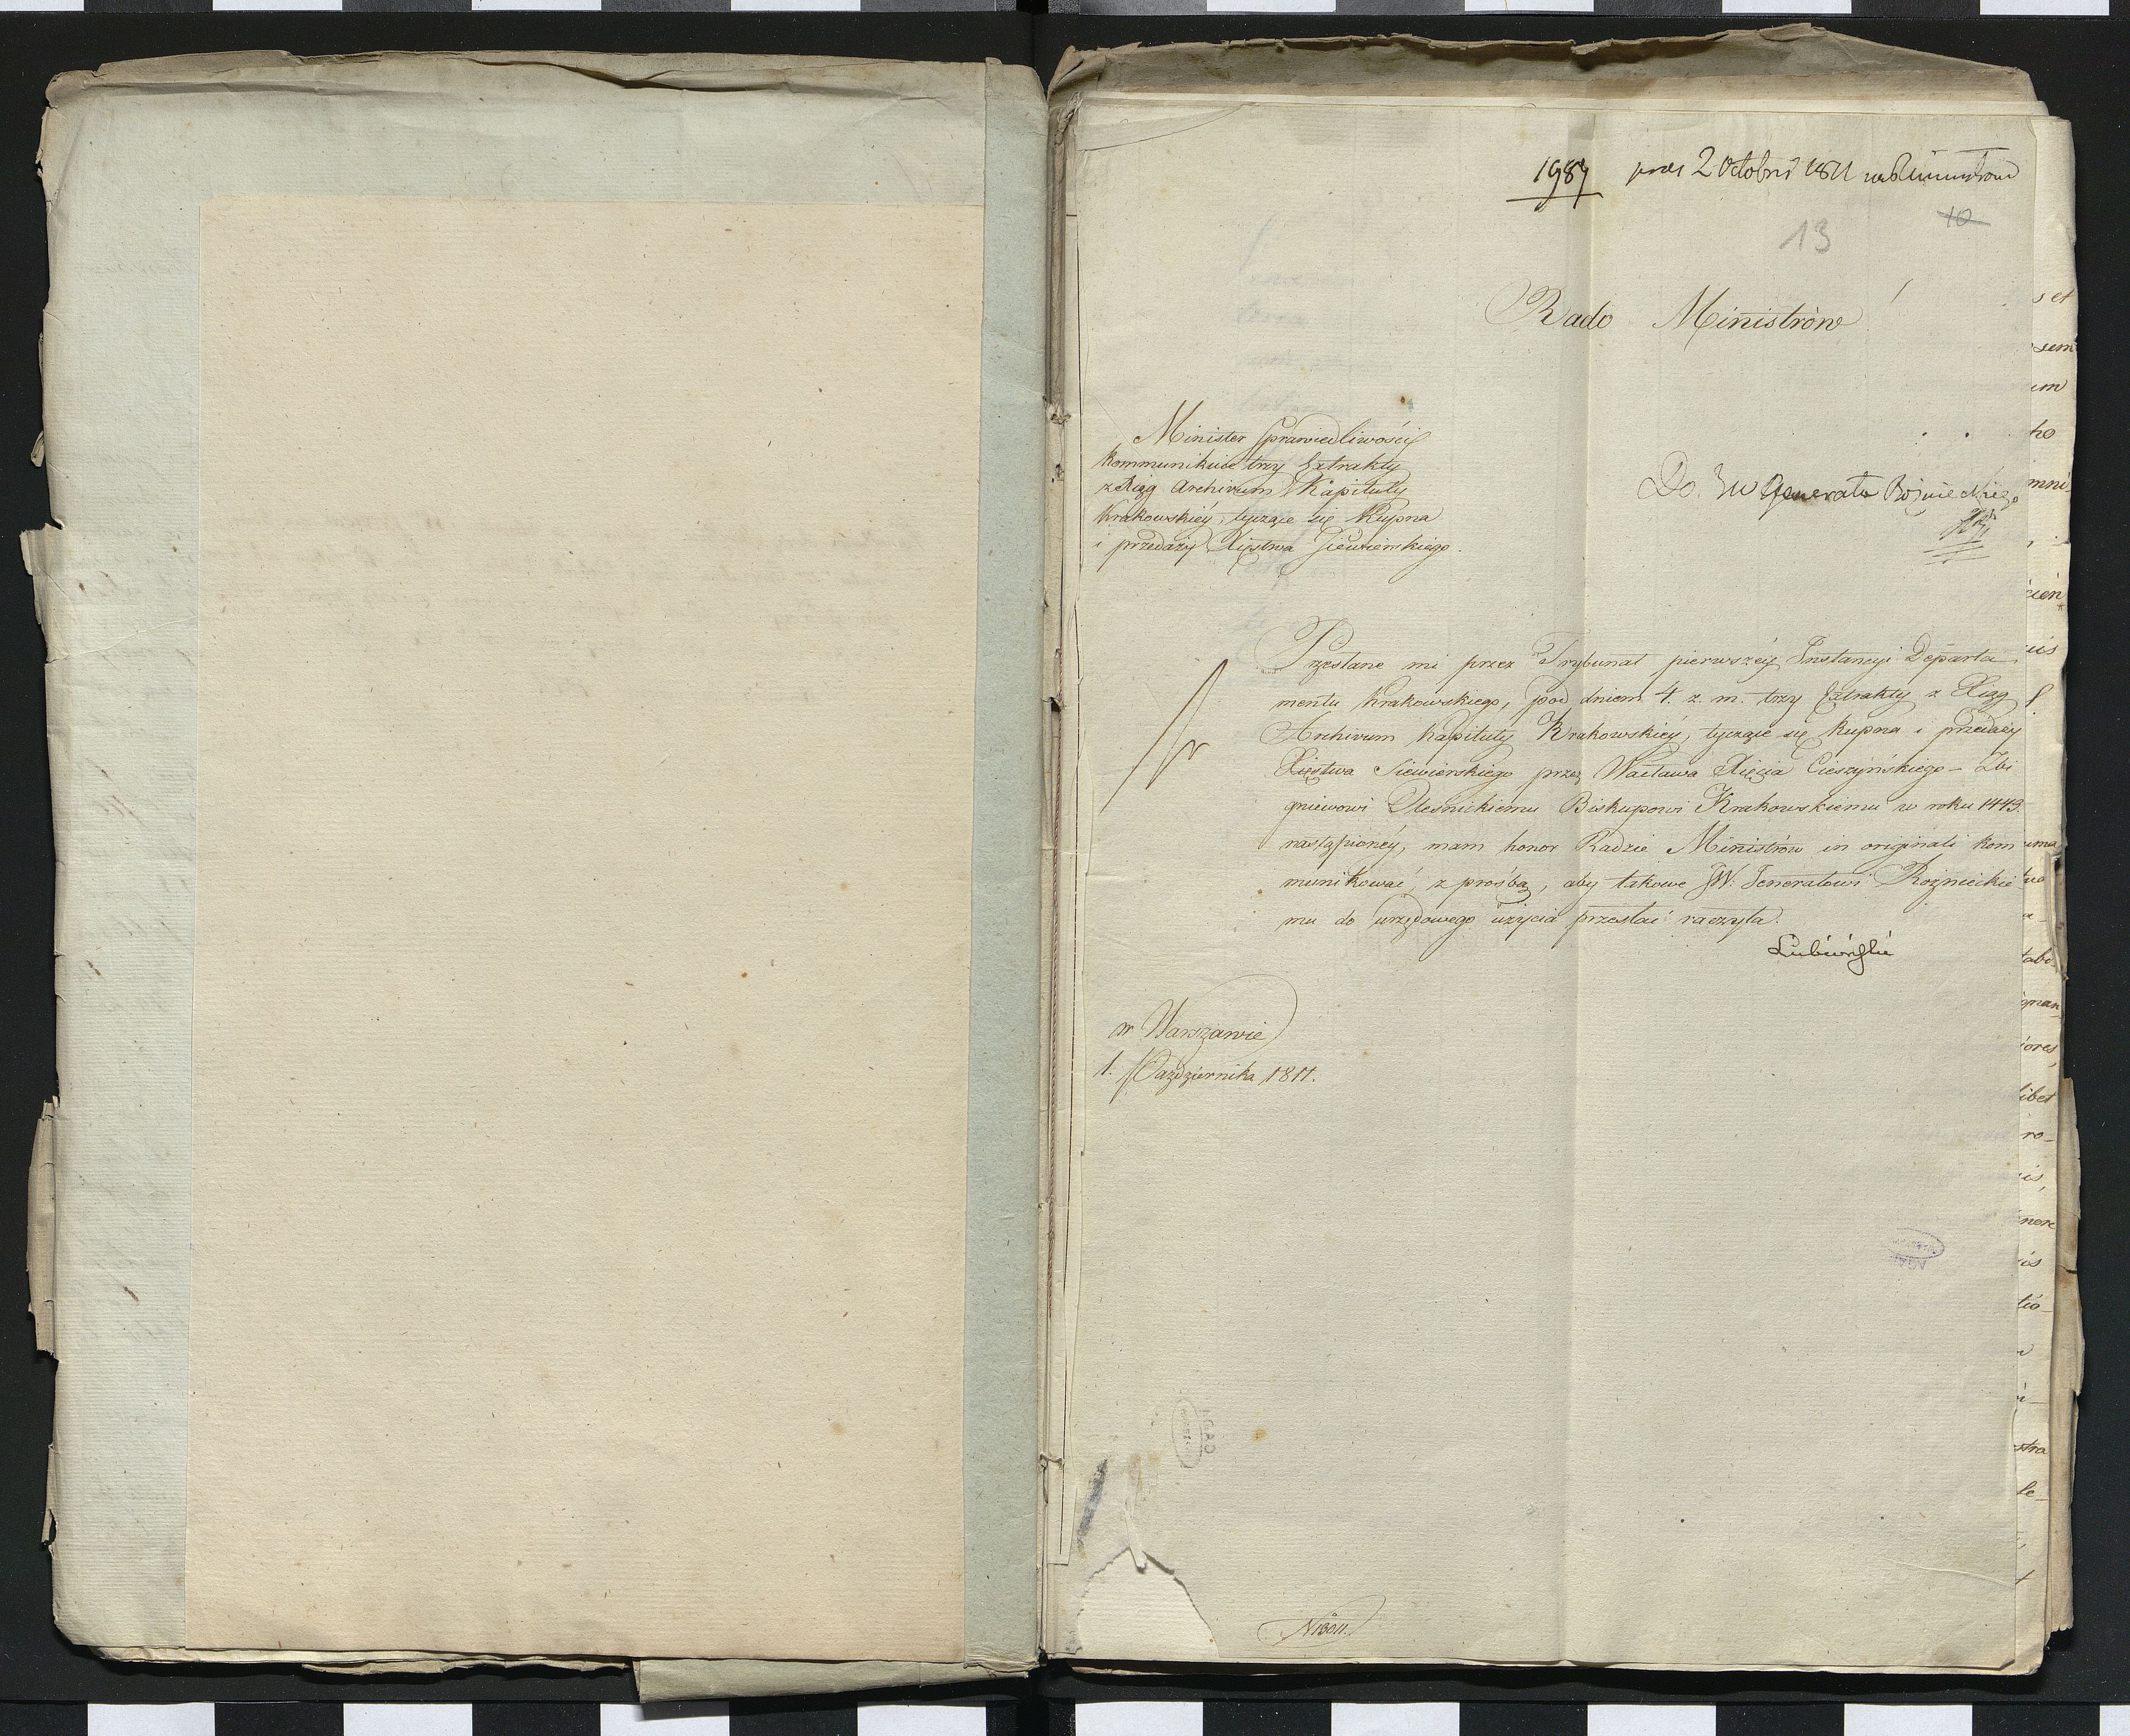 1987 praes 2 Octobris 1811 Ministrow
10
13
Rado Ministrów!
Minister Sprawiedliwości
kommunikuie trzy Extrakty
z Xiąg Archivum Kapituły
Krakowskiéy, tyczące się Kupna
i przedaży Xięstwa Siewierskiego.
Do JW Generała Rożnieckiego
Przesłane mi przez Trybunał pierwszéy Instancyi Departa
mentu Krakowskiego, pod dniem 4. z. m. trzy Extrakty z Xiąg
Archivum Kapituły Krakowskiéy, tyczące się kupna i przedaży
Xięstwa Siewierskiego przez Wacława Xięcia Cieszyńskiego – Zbi
gniewowi Oleśnickiemu Biskupowi Krakowskiemu w roku 1443.
nastąpionéy, mam honor Radzie Ministrów in originali kom
munikować, z prośbą, aby takowe JW. Generałowi Rożnieckie
mu do urzędowego użycia przesłać raczyła.
Lubieński
w Warszawie
1. Października 1811.
N 13011.